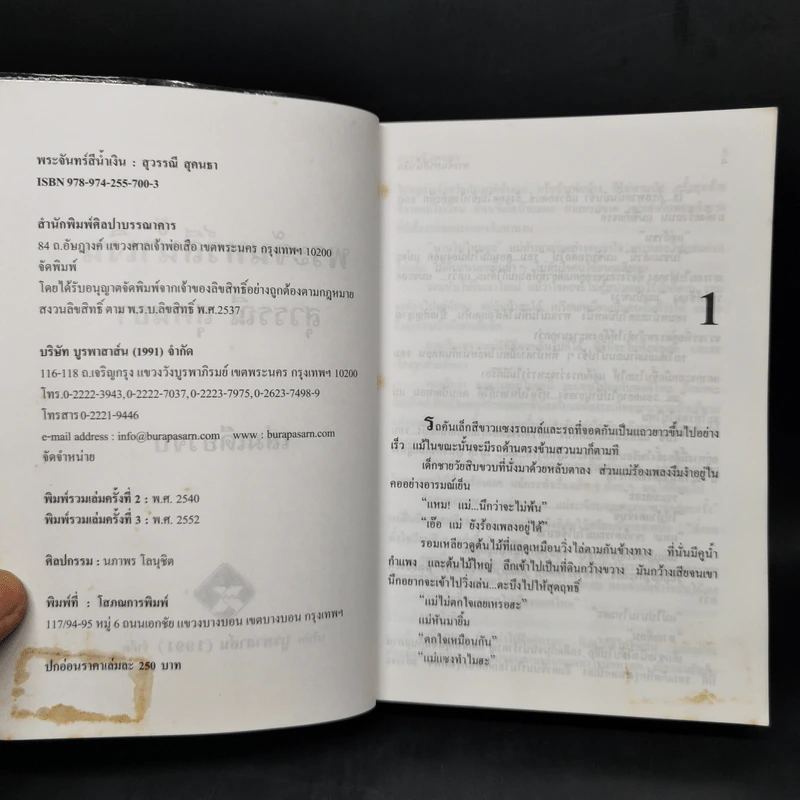 พระจันทร์สีน้ำเงิน : สุวรรณี สุคนธา
ISBN 978-974-255-700-3
สำนักพิมพ์ศิลปาบรรณาคาร
84 ถ.อัษฎางค์ แขวงศาลเจ้าพ่อเสือ เขตพระนคร กรุงเทพฯ 10200
จัดพิมพ์
โดยได้รับอนุญาตจัดพิมพ์จากเจ้าของลิขสิทธิ์อย่างถูกต้องตามกฎหมาย
สงวนลิขสิทธิ์ ตาม พ.ร.บ.ลิขสิทธิ์ พ.ศ.2537
บริษัท บูรพาสาส์น (1991) จำกัด
116-118 ถ.เจริญกรุง แขวงวังบูรพาภิรมย์ เขตพระนคร กรุงเทพฯ 10200
โทร.0-2222-3943, 0-2222-7037, 0-2223-7975, 0-2623-7498-9
โทรสาร 0-2221-9446
e-mail address : info@burapasarn.com www : burapasarn.com
จัดจำหน่าย
พิมพ์รวมเล่มครั้งที่ 2 : พ.ศ. 2540
พิมพ์รวมเล่มครั้งที่ 3 : พ.ศ. 2552
ศิลปกรรม : นภาพร โลนุชิต
พิมพ์ที่ : โสภณการพิมพ์
117/94-95 หมู่ 6 ถนนเอกชัย แขวงบางบอน เขตบางบอน กรุงเทพฯ
ปกอ่อนราคาเล่มละ 250 บาท
1
รถคันเล็กสีขาวแซงรถเมล์และรถที่จอดกันเป็นแถวยาวขึ้นไปอย่าง
เร็ว แม้ในขณะนั้นจะมีรถด้านตรงข้ามสวนมาก็ตามที
เด็กชายวัยสิบขวบที่นั่งมาด้วยหลับตาลง ส่วนแม่ร้องเพลงงึมงำอยู่ใน
คออย่างอารมณ์เย็น
“แหม! แม่...นึกว่าจะไม่พ้น”
“เอ๊อ แม่ ยังร้องเพลงอยู่ได้”
รอมเหลียวดูต้นไม้ที่แลดูเหมือนวิ่งไล่ตามกันข้างทาง ที่นั่นมีคูน้ำ
กำแพง และต้นไม้ใหญ่ ลึกเข้าไปเป็นที่ดินกว้างขวาง มันกว้างเสียจนเขา
นึกอยากจะเข้าไปวิ่งเล่น...ตะบึงไปให้สุดฤทธิ์
“แม่ไม่ตกใจเลยเหรอฮะ”
แม่หันมายิ้ม
“ตกใจเหมือนกัน”
“แม่แซงทำไมฮะ”